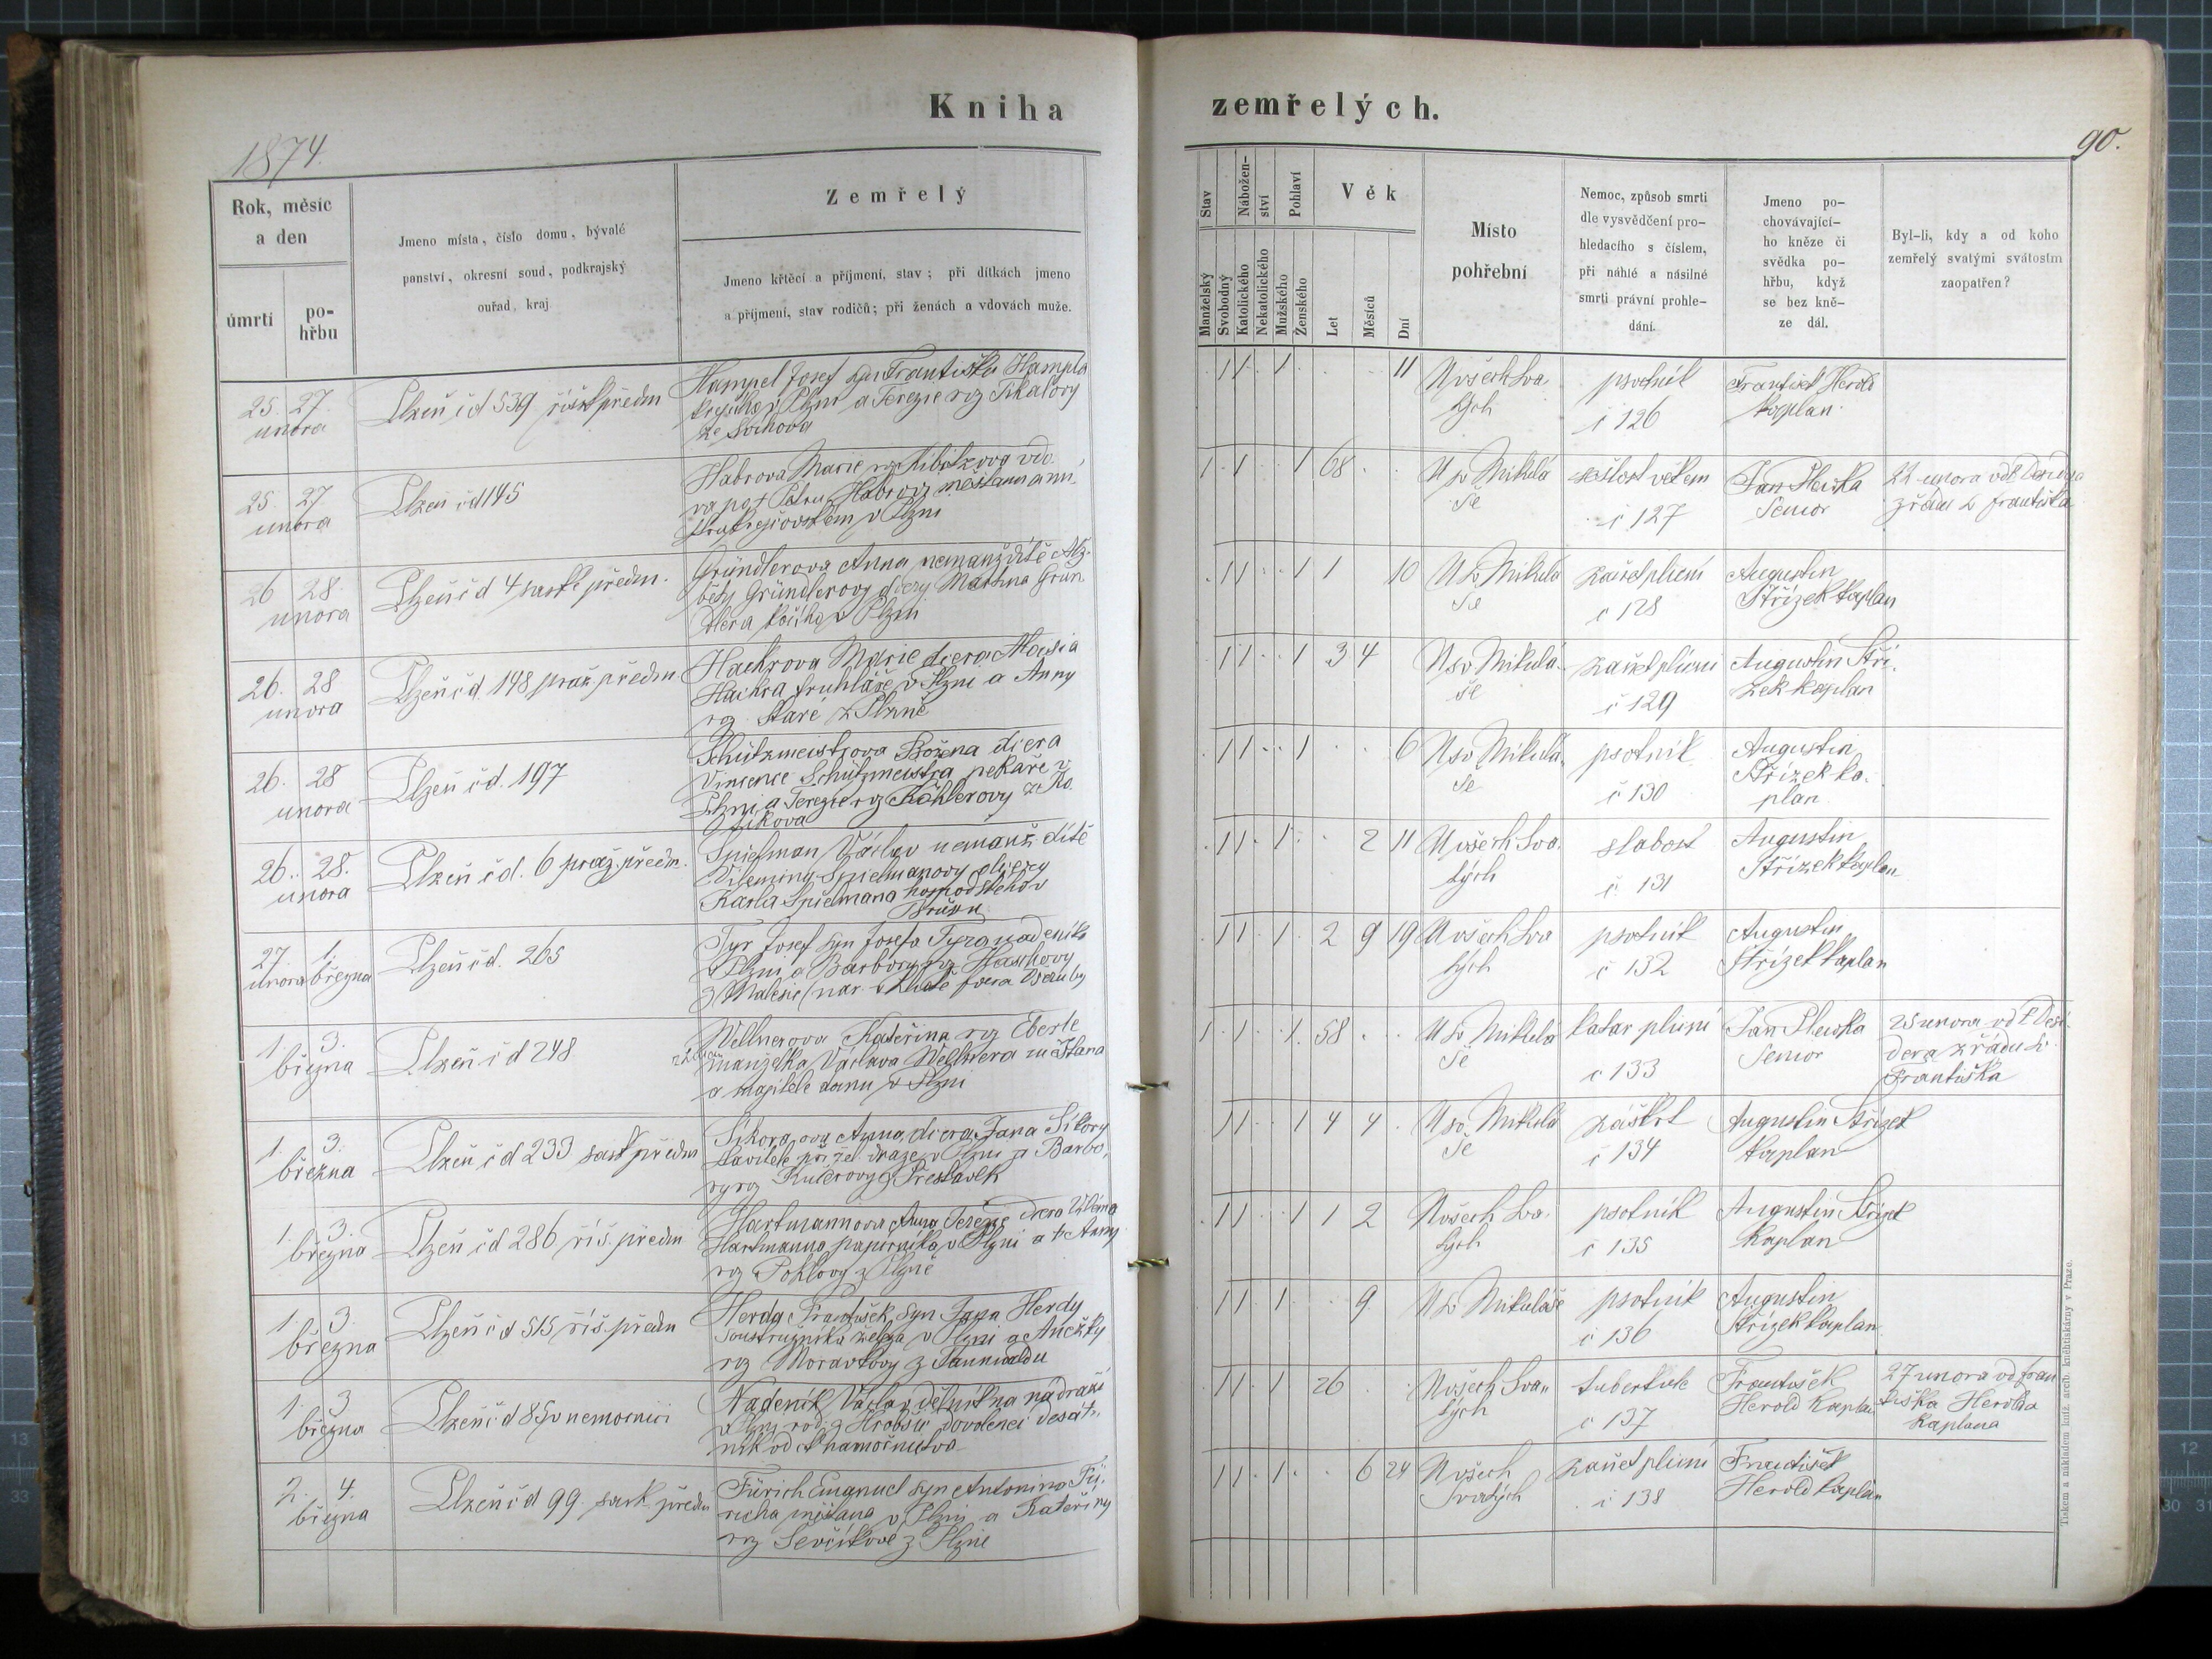 Kniha
zemřelých.
1874.
90.
Rok, měsíc
a den
úmrtí
po-
hřbu
Jmeno místa, číslo domu, bývalé
panství, okresní soud, podkrajský
ouřad, kraj.
Zemřelý
Jmeno křtěcí a příjmení, stav; při dítkách jmeno
a příjmení, stav rodičů; při ženách a vdovách muže.
Stav
Nábožen-
ství
Pohlaví
Věk
Manželský
Svobodný
Katolického
Nekatolického
Mužského
Ženského
Let
Měsíců
Dní
Místo
pohřební
Nemoc, způsob smrti
dle vysvědčení pro-
hledacího s číslem,
při náhlé a násilné
smrti právní prohle-
dání.
Jmeno po-
chovávající-
ho kněze či
svědka po-
hřbu, když
se bez kně-
ze dál.
Byl-li, kdy a od koho
zemřelý svatými svátostm
zaopatřen?
25. 27.
února
Plzeň čd 539 říšk předm
Hampel Josef syn Františka Hampla
v Plzni a Terezie roz
ze
1 1 1 11
U všech Sva
tých
psotník
č 126
František Herold
kaplan
25. 27
února
Plzeň čd 145
Habrova Marie roz vdo
va po † Petru Habrovi měšťanu a
v Plzni
1 1 1 68
U sv Mikulá
še
sešlost věkem
č 127
Jan
Senior
22 února od
z řádu s Františka
26 28.
února
Plzeň č d 4 saské předm.
Gründlerova Anna nemanž dítě Alž-
běty Gründlerovy dcery Martina Grün
dlera kočího v Plzni
1 1 1 1 10
U sv Mikulá
še
zánět plicní
č 128
Augustin
Střízek kaplan
26. 28
února
Plzeň č d. 148 praž předm
Hackrova Marie dcera Aloisia
Hackra truhláře v Plzni a Anny
roz Staré z Plzně
1 1 1 3 4
U sv Mikulá
še
zánět plicní
č 129
Augustin Stří
zek kaplan
26. 28
února
Plzeň č d. 197
Schützmeistrova Božena dcera
Vincence Schützmeistra pekaře v
Plzni a Terezie roz Köhlerovy z Ro
kova
1 1 1 6
U sv Mikulá
še
psotník
č 130
Augustin
Střízek ka
plan
26. 28.
února
Plzeň č d. 6 praž. předm.
Spielman Václav nemanž. dítě
Vileminy Spielmanovy dcery
Karla Spielmana v
1 1 1 2 11
U všech Sva
tých
slabost
č 131
Augustin
Střízek kaplan
27. 1.
února března
Plzeň č d. 265
Tyr Josef syn Josefa Tyra nadeníka
v Plzni a Barbory roz Haschovy
z Malesic (nar. v
1 1 1 2 9 19
U všech Sva
tých
psotník
č 132
Augustin
Střízek kaplan
1. 3.
března
Plzeň č d 248
Wellnerova Kateřina roz Eberle
manželka Václava Wellnera měšťana
a majitele domu v Plzni
1 1 1 58
U sv Mikulá
še
katar plicní
č 133
Jan
Senior
25 února od P Desi
dera z řádu S
Františka
1. 3.
března
Plzeň č d 233 sask předm
Síkorova Anna, dcera Jana Síkory
stavitele při žel. dráze v Plzni a Barbo
ry roz Kučerovy z Přestavlk
1 1 1 4 4
U sv Mikulá
še
záškrt
č 134
Augustin Střízek
kaplan
1. 3.
března
Plzeň č d 286 říš. předm
Hartmannova Anna Terezie dcera Viléma
Hartmanna papírníka v Plzni a † Anny
roz Poklovy z Plzně
1 1 1 1 2
U všech Sva
tých
psotník
č 135
Augustin Střízek
kaplan
1. 3.
března
Plzeň č d 515 říš. předm
Herda František syn Jana Herdy
soustružníka železa v Plzni a Anežky
roz Moravkovy z Tannwaldu
1 1 1 9
U sv Mikuláše
psotník
č 136
Augustin
Střízek kaplan
1. 3
března
Plzeň č d 85 v nemocnici
Nadeník Václav dělník na nádraží
v Plzni rod. z dovolenec desát
ník od
1 1 1 26
U všech Sva
tých
tuberkule
č 137
František
Herold kaplan
27 února od Fran
tiška Herolda
kaplana
2. 4.
března
Plzeň č d 99. sask. předm
Fürich Emanuel syn Antonina Fü
richa měšťana v Plzni a Kateřiny
roz Sevčíkové z Plzně
1 1 1 6 24
U všech
Svatých
zánět plicní
č 138
František
Herold kaplan
Tiskem a nákladem kníž. arcib. knihtiskárny v Praze.